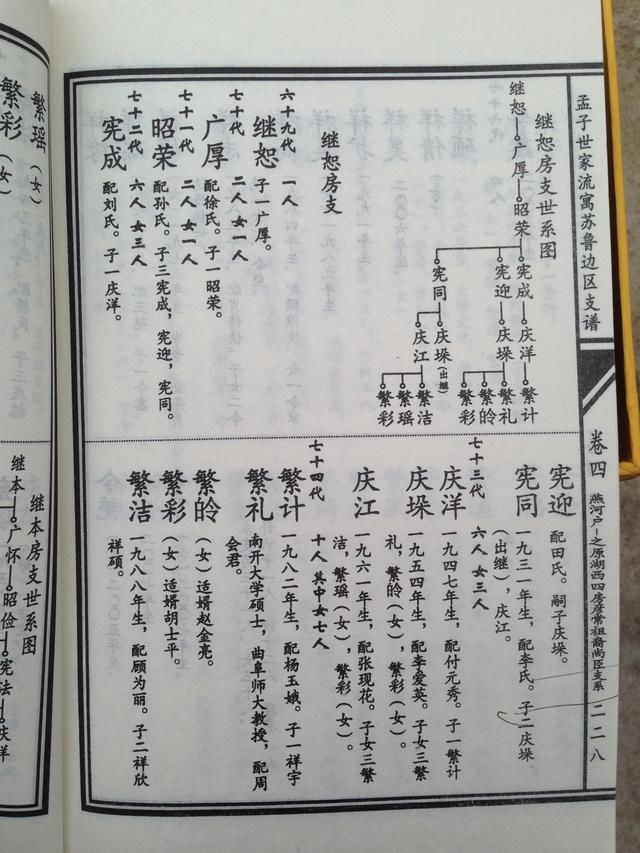 孟子世家流寓苏鲁边区支谱
卷四
燕河户—之原湖西四房彦常祖裔尚臣支系
二二八
继恕房支世系图
继恕—广厚—昭荣
宪成—庆洋—繁计
宪迎—庆垛
繁礼
繁皊
繁彩
宪同
庆垛(出继)
庆江
繁洁
繁瑶
繁彩
继恕房支
六十九代 一人
继恕 子一广厚。
七十代 二人女一人
广厚 配徐氏。子一昭荣。
七十一代 二人女一人
昭荣 配孙氏。子三宪成,宪迎,宪同。
七十二代 六人女三人
宪成 配刘氏。子一庆洋。
宪迎 配田氏。嗣子庆垛。
宪同 一九三一年生,配李氏。子二庆垛
(出继),庆江。
七十三代 六人女三人
庆洋 一九四七年生,配付元秀。子一繁计
庆垛 一九五四年生,配李爱英。子女三繁
礼,繁皊(女),繁彩(女)。
庆江 一九六一年生,配张现花。子女三繁
洁,繁瑶(女),繁彩(女)。
七十四代 十人其中女七人
繁计 一九八二年生,配杨玉娥。子一祥宇
繁礼 南开大学硕士,曲阜师大教授,配周
会君。
繁皊 (女)适婿赵金亮。
繁彩 (女)适婿胡士平。
繁洁 一九八八年生,配顾为丽。子二祥欣
祥硕。
繁瑶(女)
繁彩(女)
继本房支世系图
继本—广怀—昭俭—宪法—庆洋